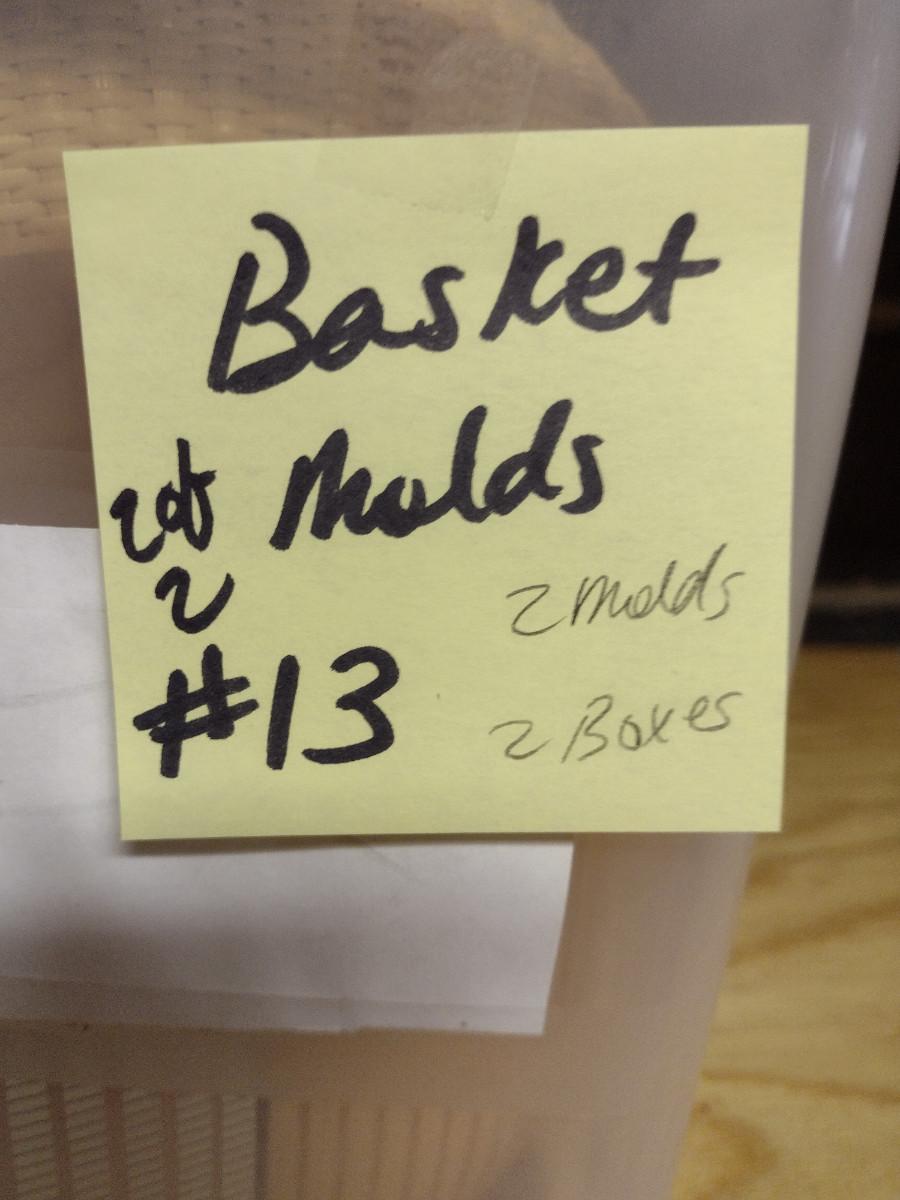 Basket
Molds
2 of
2
#13
2 molds
2 Boxes